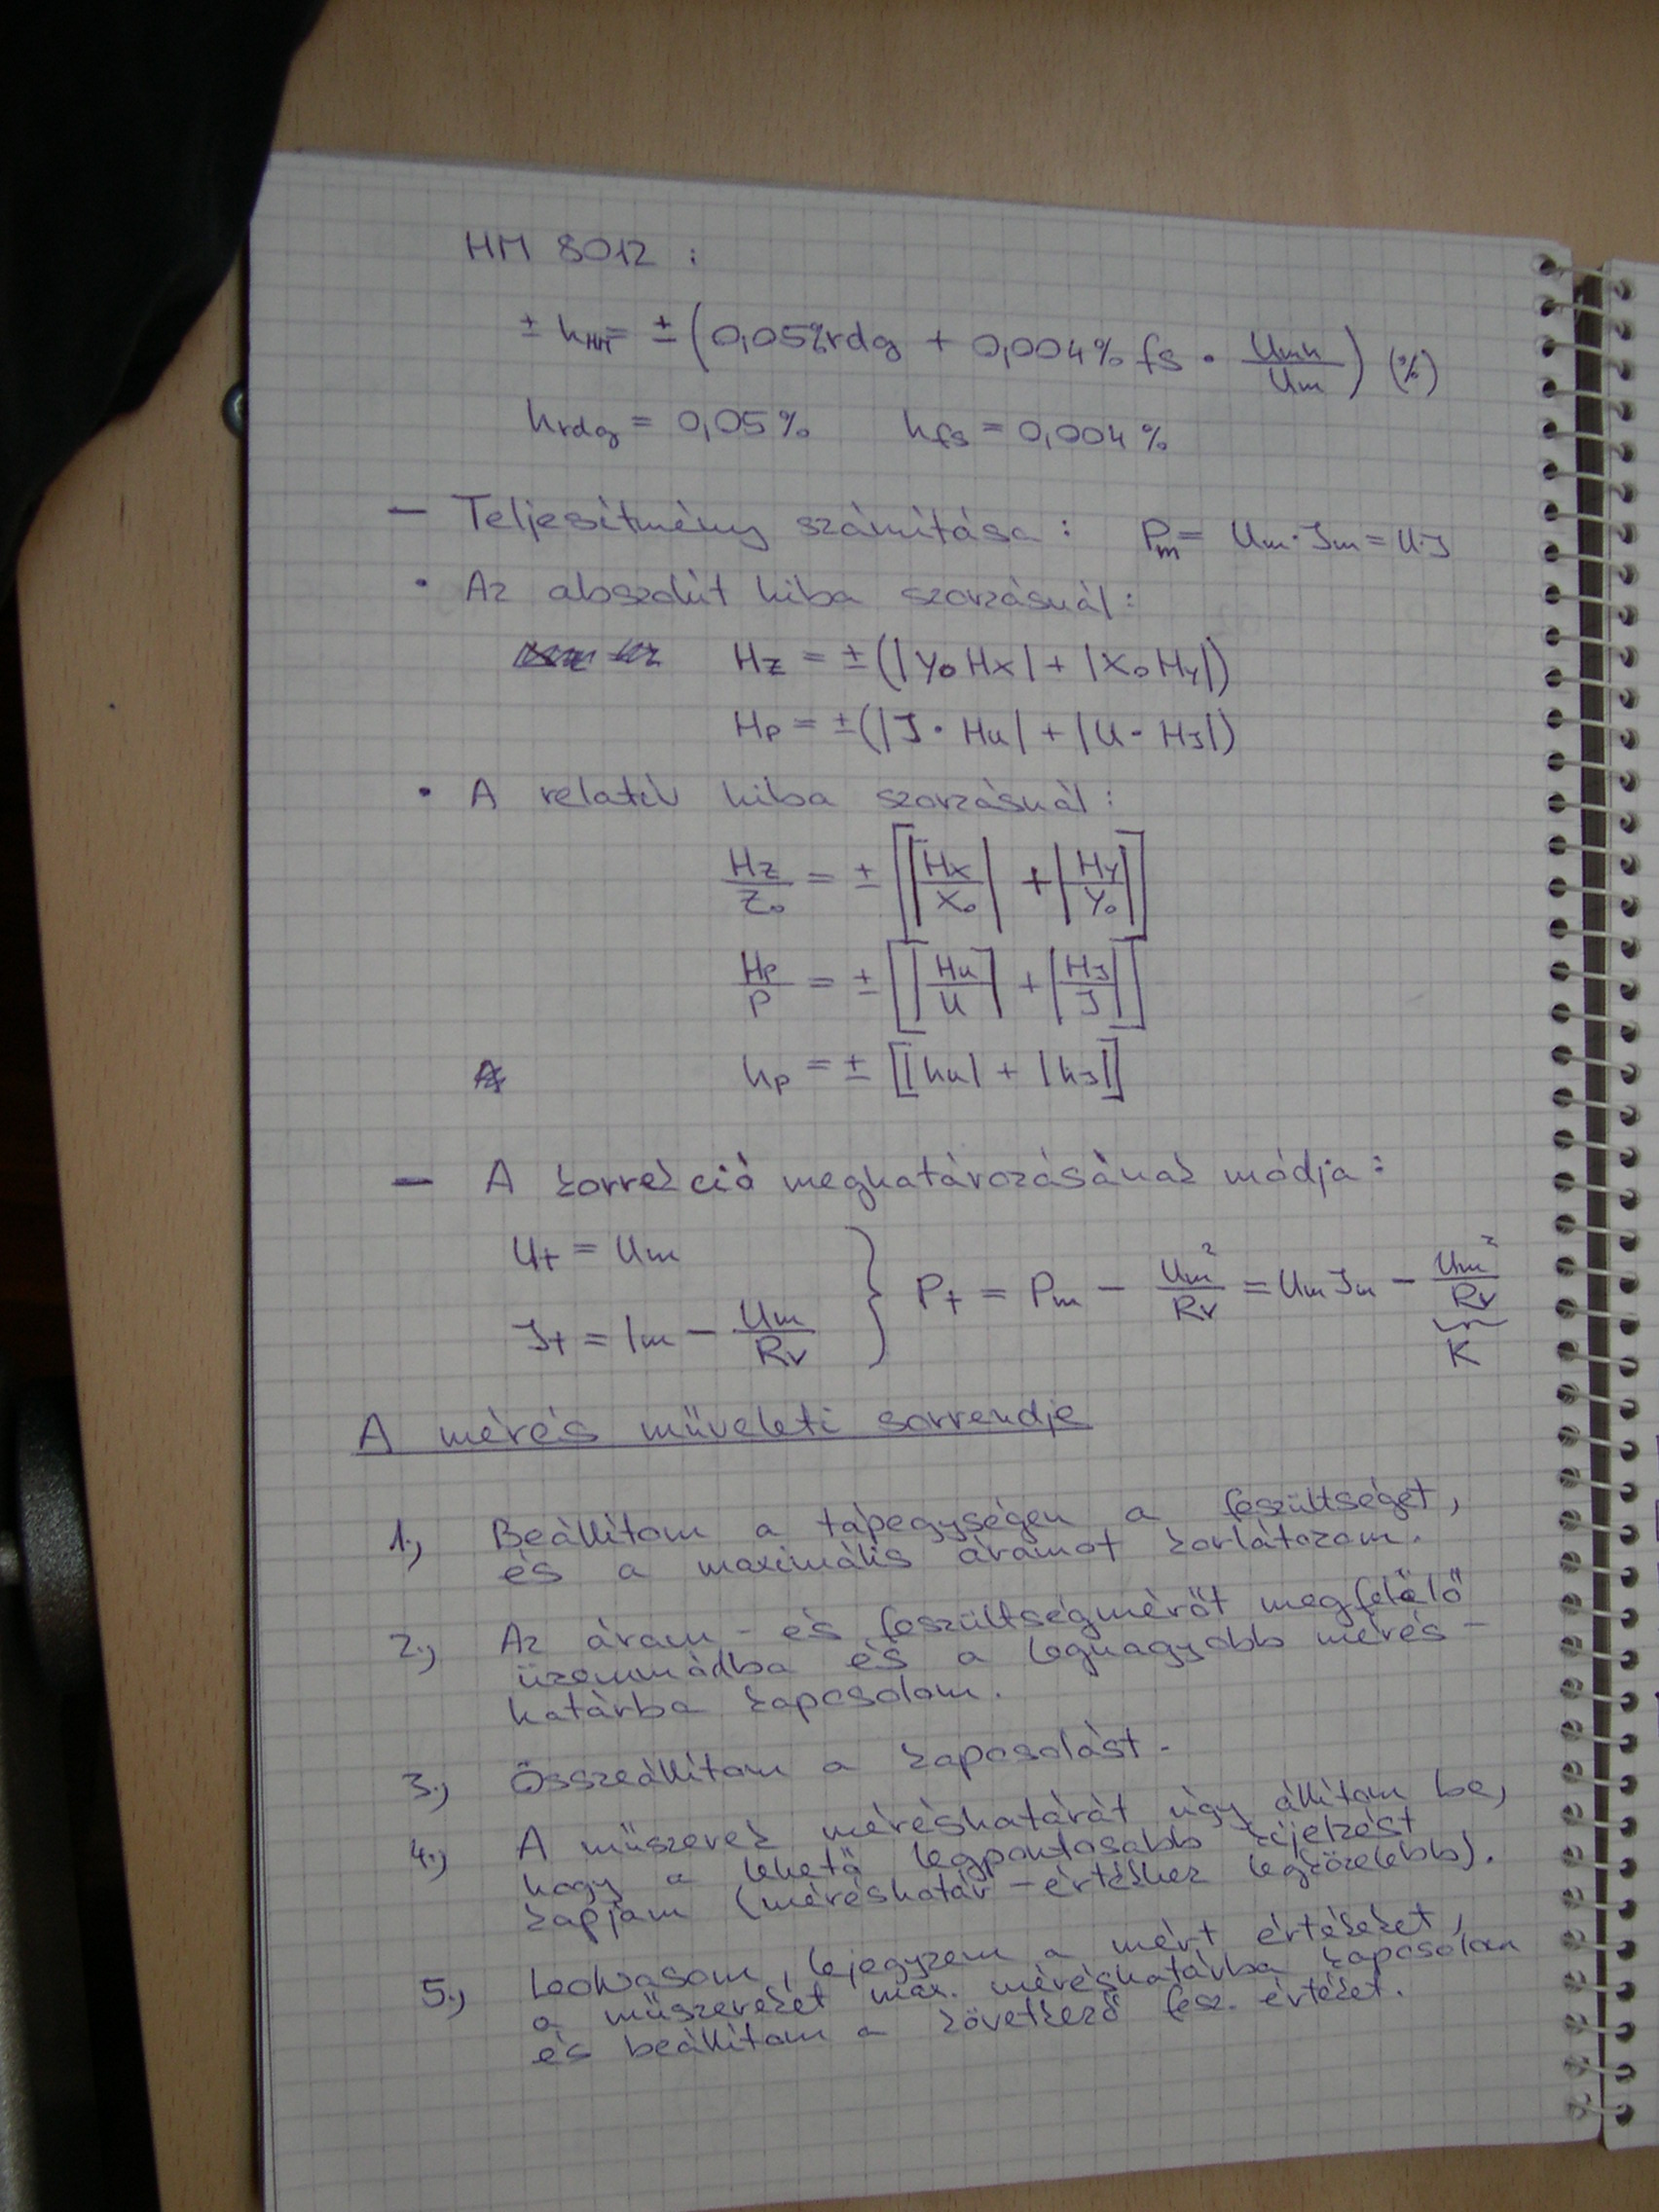 HM 8012 :
± hHM = ± (0,05%rdg + 0,004% fs · Umh/Um) (%)
hrdg = 0,05% hfs = 0,004%
- Teljesítmény számítása : Pm = Um·Im = U·I
• Az abszolút hiba szorzásnál :
Hz = ±(|Y₀Hx| + |X₀Hy|)
Hp = ±(|I · Hu| + |U · HI|)
• A relatív hiba szorzásnál :
Hz/Z₀ = ± [|Hx/X₀| + |Hy/Y₀|]
Hp/P = ± [|Hu/U| + |HI/I|]
hp = ± [|hu| + |hI|]
- A korrekció meghatározásának módja :
Ut = Um
It = Im - Um/Rv } Pt = Pm - Um²/Rv = Um Im - Um²/Rv
K
A mérés műveleti sorrendje
1., Beállítom a tápegységen a feszültséget,
és a maximális áramot korlátozom.
2., Az áram- és feszültségmérőt megfelelő
üzemmódba és a legnagyobb mérés-
határba kapcsolom.
3., Összeállítom a kapcsolást.
4., A műszerek méréshatárát úgy állítom be,
hogy a lehető legpontosabb kijelzést
kapjam (méréshatár-értékhez legközelebb).
5., Leolvasom, lejegyzem a mért értékeket,
a műszereket max. méréshatárba kapcsolom
és beállítom a következő fesz. értéket.